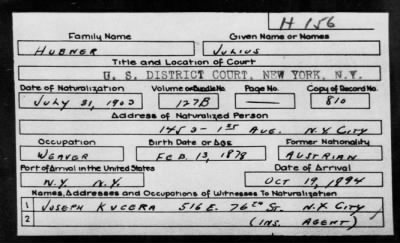 H 156
Family Name Given Name or Names
HUBNER JULIUS
Title and Location of Court
U. S. DISTRICT COURT, NEW YORK, N.Y.
Date of Naturalization Volume or Bundle No. Page No. Copy of Record No.
JULY 31, 1903 127B — 810
Address of Naturalized Person
1453 - 1ST AVE. N.Y. CITY
Occupation Birth Date or Age Former Nationality
WEAVER FEB. 13, 1878 AUSTRIAN
Port of Arrival in the United States Date of Arrival
N.Y. N.Y. OCT 19, 1894
Names, Addresses and Occupations of Witnesses To Naturalization
1 JOSEPH KUCERA 516 E. 76TH ST. N.Y. CITY
2 (INS. AGENT)